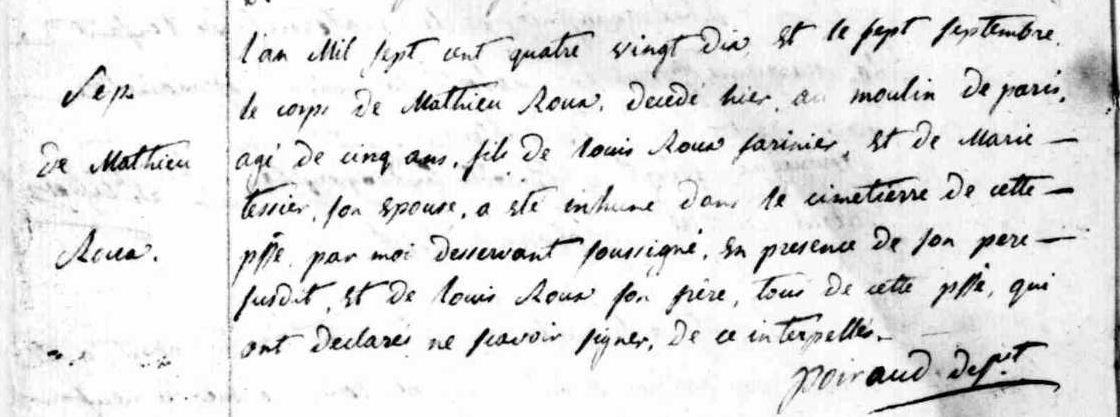 Sep.
de Mathieu
Roux.
l'an Mil sept cent quatre vingt dix, Et le sept septembre,
le corps de Mathieu Roux, decedé hier, au moulin de paris,
agé de cinq ans, fils de louis Roux farinier, Et de Marie –
tessier, son Epouse, a eté inhumé dans le cimetierre de cette –
psse, par moi desservant soussigné, En presence de son pere –
susdit, Et de louis Roux son frère, tous de cette psse, qui
ont declarés ne scavoir signer, de ce interpellés. –
poiraud dest